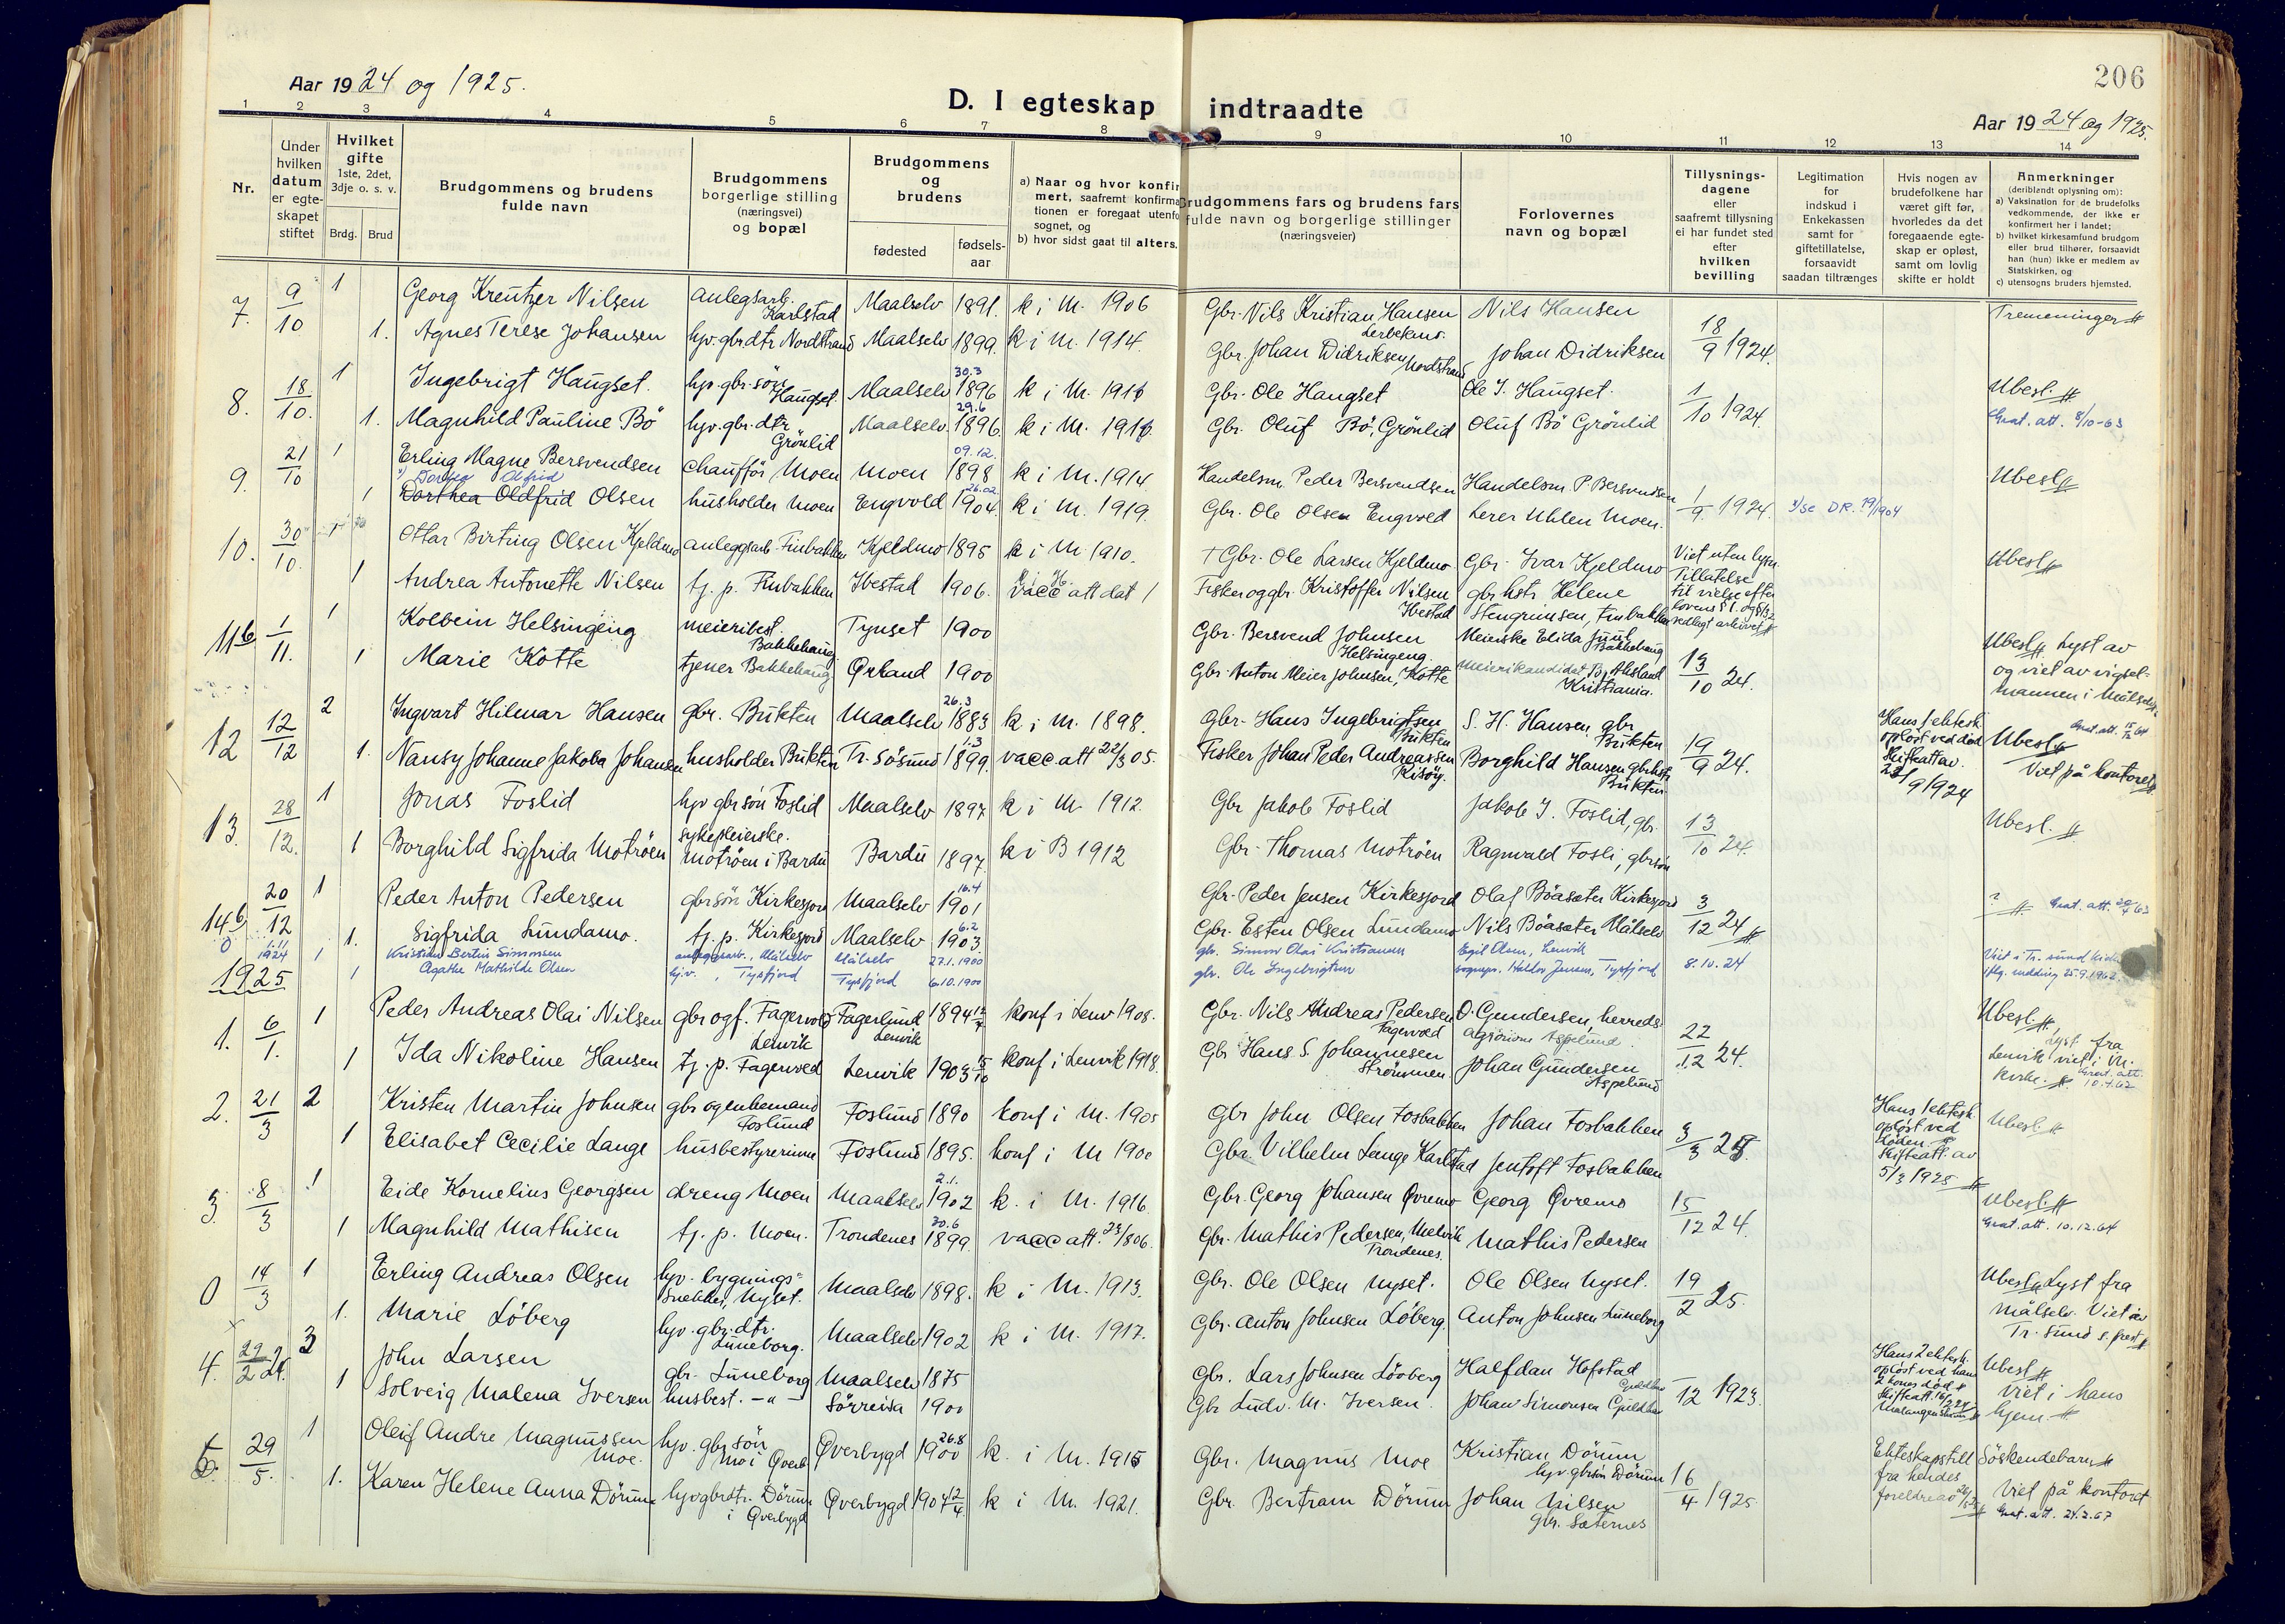 206
Aar 1924 og 1925.
D. I egteskap indtraadte
Aar 1924 og 1925.
1 2 3 4 5 6 7 8 9 10 11 12 13 14
Nr.
Under hvilken datum er egteskapet stiftet
Hvilket gifte 1ste, 2det, 3dje o. s. v.
Brdg. Brud
Brudgommens og brudens fulde navn
Brudgommens borgerlige stilling (næringsvei) og bopæl
Brudgommens og brudens
fødested fødsels-aar
a) Naar og hvor konfir
mert, saafremt konfirma
tionen er foregaat utenfo
sognet, og
b) hvor sidst gaat til alters.
Brudgommens fars og brudens fars fulde navn og borgerlige stillinger (næringsveier)
Forlovernes navn og bopæl
Tillysnings-dagene eller saafremt tillysning ei har fundet sted efter hvilken bevilling
Legitimation for indskud i Enkekassen samt for giftetillatelse, forsaavidt saadan tiltrænges
Hvis nogen av brudefolkene har været gift før, hvorledes da det foregaaende egte-skap er opløst, samt om lovlig skifte er holdt
Anmerkninger (deriblandt oplysning om):
a) Vaksination for de brudefolks vedkommende, der ikke er konfirmert her i landet;
b) hvilket kirkesamfund brudgom eller brud tilhører, forsaavidt han (hun) ikke er medlem av Statskirken, og
c) utensogns bruders hjemsted.
7. 9/10 1 Georg Kreutzer Nilsen anlegsarb. Karlstad Maalselv 1891. k i M. 1906 Gbr. Nils Kristian Hansen Nils Hansen 18/9 1924. Tremeninger
1. Agnes Terese Johansen hjv. gbr.dtr Nordstrand Maalselv 1899. k i M. 1914. Gbr. Johan Didriksen Nordstrand Johan Didriksen
8. 18/10. 1 Ingebrigt Haugset. hjv. gbr.søn Haugset. Maalselv 30.3 1896 k i M. 1911 Gbr. Ole Haugset Ole J. Haugset. 1/10 1924 Ubesl.
1. Magnhild Pauline Bö hjv. gbr. dtr Grönlid Maalselv. 29.6 1896. k i M. 1911. Gbr. Oluf Bö, Grönlid Oluf Bö Grönlid Grat. att. 8/10-63
9. 21/10 1 Erling Magne Bersvendsen chauffør Moen Moen 09.12. 1898 k i M. 1914 Handelsm. Peder Bersvendsen Handelsm. P. Bersvendsen 1/9 1924. Ubesl.
1 Dorthea Oldfrid Olsen husholder Moen Engvold 26.02 1904. k i M. 1919. Gbr. Ole Olsen Engvold Lerer Uhlen Moen. se DR. 19/1904
10. 30/10. 1 Ottar Birting Olsen Kjeldmo anleggsarb Finbakken Kjeldmo 1895 k i M 1910. † Gbr. Ole Larsen Kjeldmo Gbr. Ivar Kjeldmo Viet uten lysn. Ubesl
1 Andrea Antonette Nilsen tj. p. Finbakken Ibestad 1906. vacc att dat Fisker og gbr. Kristoffer Nilsen Ibestad gbrhstr Helene Stengrimsen, Finbakken Tillatelse til vielse efter lovens § 1. vedlagt arkivet
11 b 1/11. 1 Kolbein Helsingeng meieribest. Bakkehaug Tynset 1900 Gbr. Bersvend Johnsen Helsingeng. Meierske Elida Juul Bakkehaug 13/10 24. Ubesl. Lyst av
1 Marie Kotte tjener Bakkehaug Ørland 1900 Gbr. Anton Meier Johnsen, Kotte Meierikandidat Kristiania. og viet av vigsel-mannen i Målselv
12 12/12 2 Ingvart Hilmar Hansen gbr. Bukten Maalselv 26.3 1883 k i M. 1898. Gbr. Hans Ingebrigtsen Bukten S. H. Hansen gbr Bukten 19/9 24. Hans 1 ektesk. opløst ved død Skifteatt av. 23/9 1924 Ubesl. Grat. att. 15/12 64
1. Nansy Johanne Jakoba Johansen husholder Bukten Tr. Sösund 1899. vacc. att 22/3 05. Fisker Johan Peder Andreassen Risöy. Borghild Hansen gbrhstr Bukten Viet på kontoret
13. 28/12. 1 Jonas Foslid hjv gbr søn Foslid Maalselv 1897 k i M. 1912. Gbr Jakob Foslid Jakob J. Foslid, gbr. 13/10 24. Ubesl.
1 Borghild Sigfrida Moträen sykepleierske. Moträen i Bardu Bardu 1897. k i B 1912 Gbr. Thomas Moträen Ragnvald Fosli, gbrsøn
14 b 20/12 1 Peder Anton Pedersen gbr søn Kirkesjord Maalselv 16.4 1901 Gbr. Peder Jensen Kirkesjord Olaf Böasæter Kirkesjord 3/12 24 ? Grat. att.
1. Sigfrida Lundamo. tj. p. Kirkesjord Maalselv 6.2 1903. Gbr. Esten Olsen Lundamo Nils Böasæter Målselv
0 1924 1 Kristian Bertin Simonsen anleggsarb., Målselv Målselv 27.1.1900 gbr. Simon Olai Kristiansen Egil Olsen, Lenvik 8.10.24 Viet i Tr. sund kirke
1 Agathe Mathilde Olsen hjv., Tysfjord Tysfjord 6.10.1900 gbr. Ole Ingebrigtsen sogneprs. Haldor Jensen, Tysfjord iflg. melding 25.9.1962
1925
1. 6/1. 1 Peder Andreas Olai Nilsen gbr og f. Fagervold Lenvik Fagerlund Lenvik 1894 konf i Lenv 1908. Gbr. Nils Andreas Pedersen Fagervold O. Gundersen, herreds- Aspelund 22/12 24. Ubesl. Lyst fra
1 Ida Nikoline Hansen tj. p. Fagervold Lenvik 1903 15/10 konf i Lenvik 1918. Gbr Hans S. Johannesen Strömmen Johan Gundersen Aspelund Lenvik viet i M. kirke. Grat. att. 10.4.62
2. 21/3 2 Kristen Martin Johnsen gbr og enkemand Foslund Foslund 1890 konf i M. 1905 Gbr John Olsen Fosbakken Johan Fosbakken 3/3 25. Hans 1 ektesk. opløst ved døden. Skifteatt. av 5/3 1925 Ubesl.
1 Elisabet Cecilie Lange husbestyrerinne Foslund 1895. konf i M 190 Gbr. Vilhelm Lange Karlstad Jentoft Fosbakken
3. 8/3 1 Eide Kornelius Georgsen dreng Moen Maalselv 2.1. 1902 k. i M. 1916. Gbr. Georg Johansen Øvremo Georg Øvremo 15/12 24. Ubesl.
1 Magnhild Mathisen tj. p. Moen. Trondenes 30.6 1899. vacc att. 23/8 06. Gbr. Mathis Pedersen, Melvik Trondenes. Mathis Pedersen Grat. att. 10.12.64
0 14/3 1 Erling Andreas Olsen hjv. bygnings-snekker, Nyset. Maalselv 1898. k i M. 1913. Gbr. Ole Olsen Nyset. Ole Olsen Nyset. 19/2 25. Ubesl. Lyst fra
1. Marie Löberg hjv. gbr. dtr. Luneborg. Maalselv 1902 k i M. 1917. Gbr. Anton Johnsen Löberg. Anton Johnsen Luneborg Målselv. Viet av Tr. sund s. prest
4. 29/2 24. 3 John Larsen gbr. Luneborg Maalselv 1875 Gbr. Lars Johnsen Lövberg Halfdan Hofstad 12 1923. Hans 2 ektesk. opløst ved hans 2 kones død Skifteatt. Ubesl.
1 Solveig Malena Iversen husbest. — " — Sörreisa 1900 Gbr Ludv. M. Iversen. Johan Simonsen Viet i hans hjem.
5. 29/5. 1 Oleif Andre Magnussen Moe. hjv. gbr søn Mo i Øverb. Øverbygd 26.8 1900 k. i M. 1915 Gbr. Magnus Moe Kristian Dörum hjv. gbrsøn Dörum 16/4 1925 Ekteskapstill fra hendes foreldre Søskendebarn
1. Karen Helene Anna Dörum hjv gbrdtr. Dörum i Øverbygd Øverbygd 1904 k i M. 1921. Gbr. Bertram Dörum Johan Nilsen Gbr. Sæternes Viet på kontoret Grat. att. 24.2.67